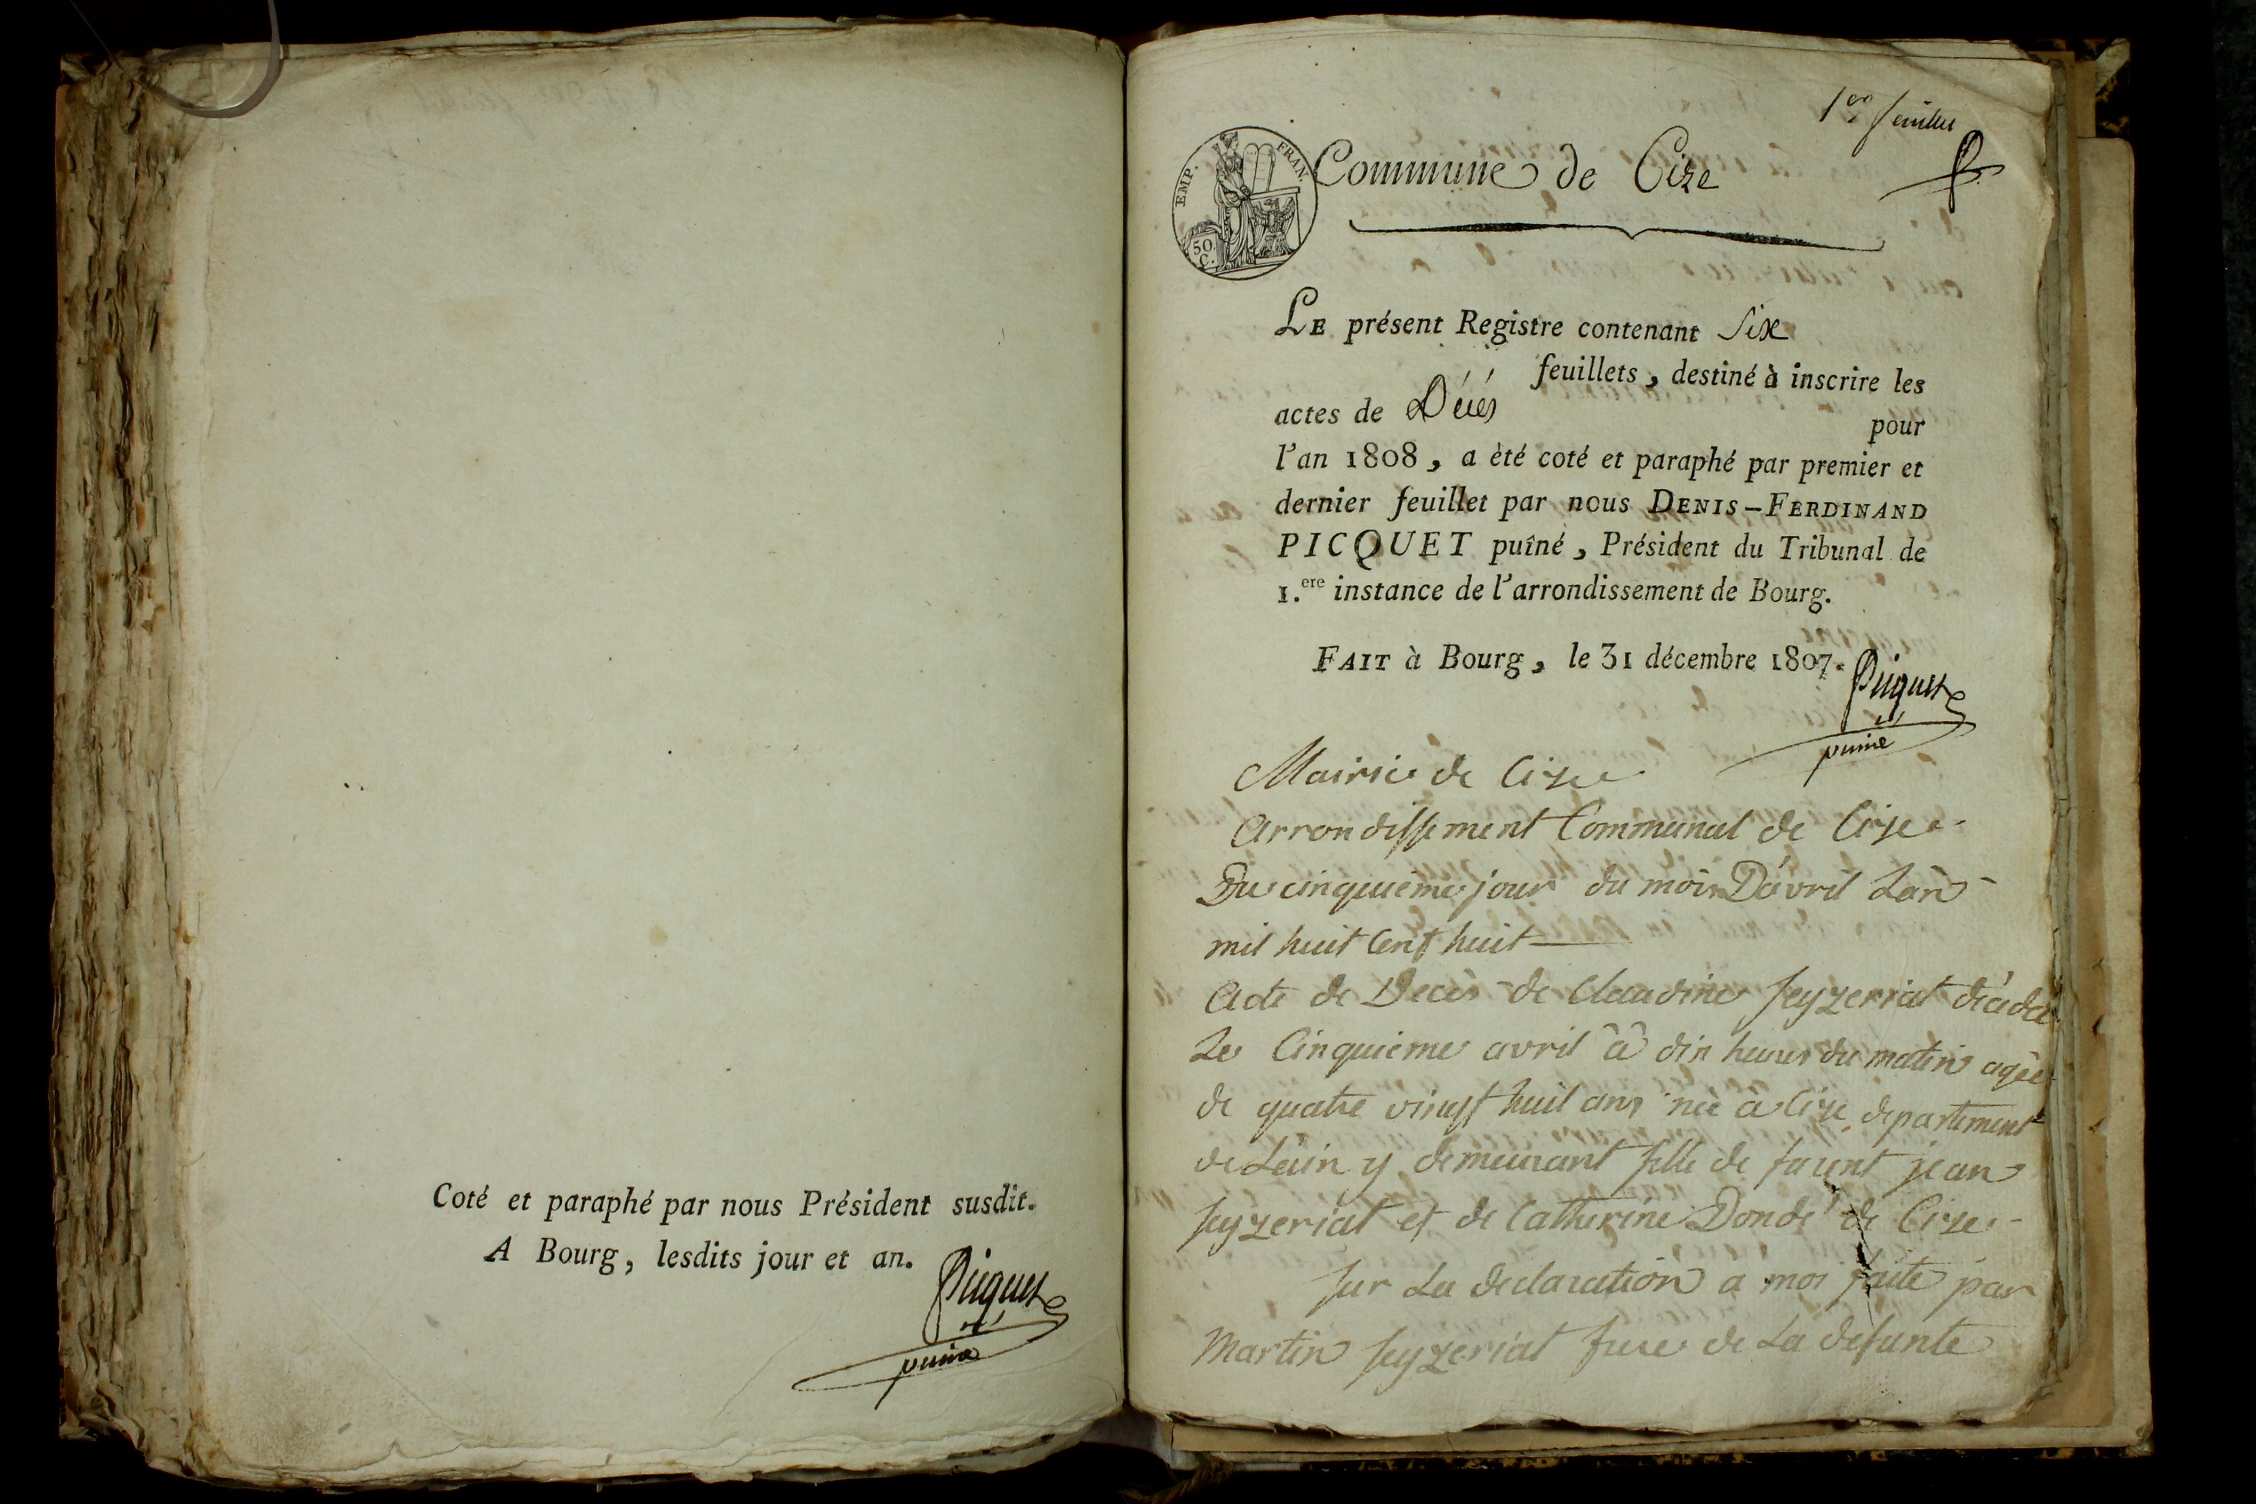 Coté et paraphé par nous Président susdit.
A Bourg, lesdits jour et an.
Picquet
puiné
1er feuillet
EMP. FRAN.
50 C.
Commune de Cize
LE présent Registre contenant Six
feuillets, destiné à inscrire les
actes de Décés pour
l'an 1808, a èté coté et paraphé par premier et
dernier feuillet par nous DENIS-FERDINAND
PICQUET puîné, Président du Tribunal de
1.ere instance de l'arrondissement de Bourg.
FAIT à Bourg, le 31 décembre 1807.
Picquet
puiné
Mairie de Cize
Arrondissement Communal de Cize
Du cinquieme jour du mois D'avril Lan
mil huit Cent huit
Acte de Decès de Claudine Seyzeriat décédée
Le Cinquieme avril à dix heures du matin agée
de quatre vingt huit ans née à Cize departement
de Lain y demeurant fille de furent jean
Seyzeriat et de Catherine Donde de Cize
Sur La declaration a moi faite par
Martin Seyzeriat frere de La defunte